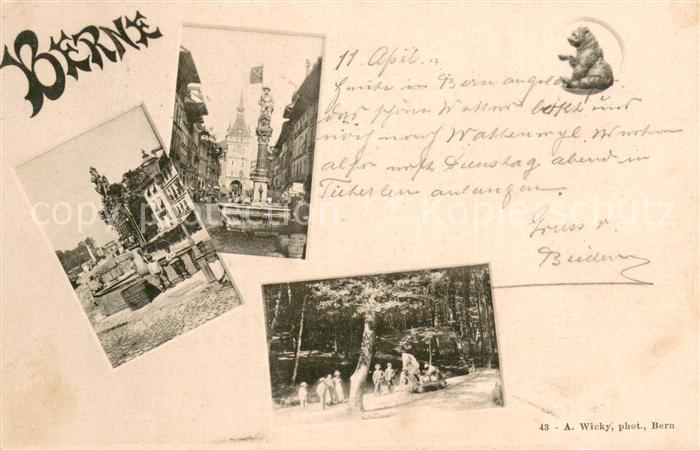 BERNE
11 April.
Heute in Bern
das schöne Wetter lockt uns
noch nach Wattenwyl. Werden
also erst Dienstag abend in
anlangen.
Gruss v.
Beiden
copyright Kopierschutz
43 - A. Wicky, phot., Bern